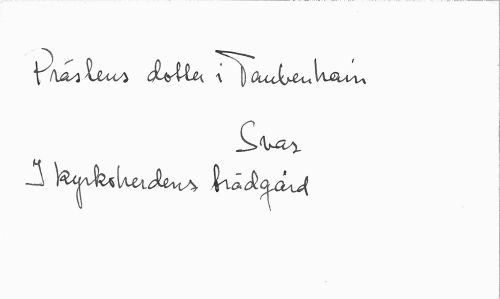 Prästens dotter i Taubenhain
Svar
I kyrkoherdens trädgård